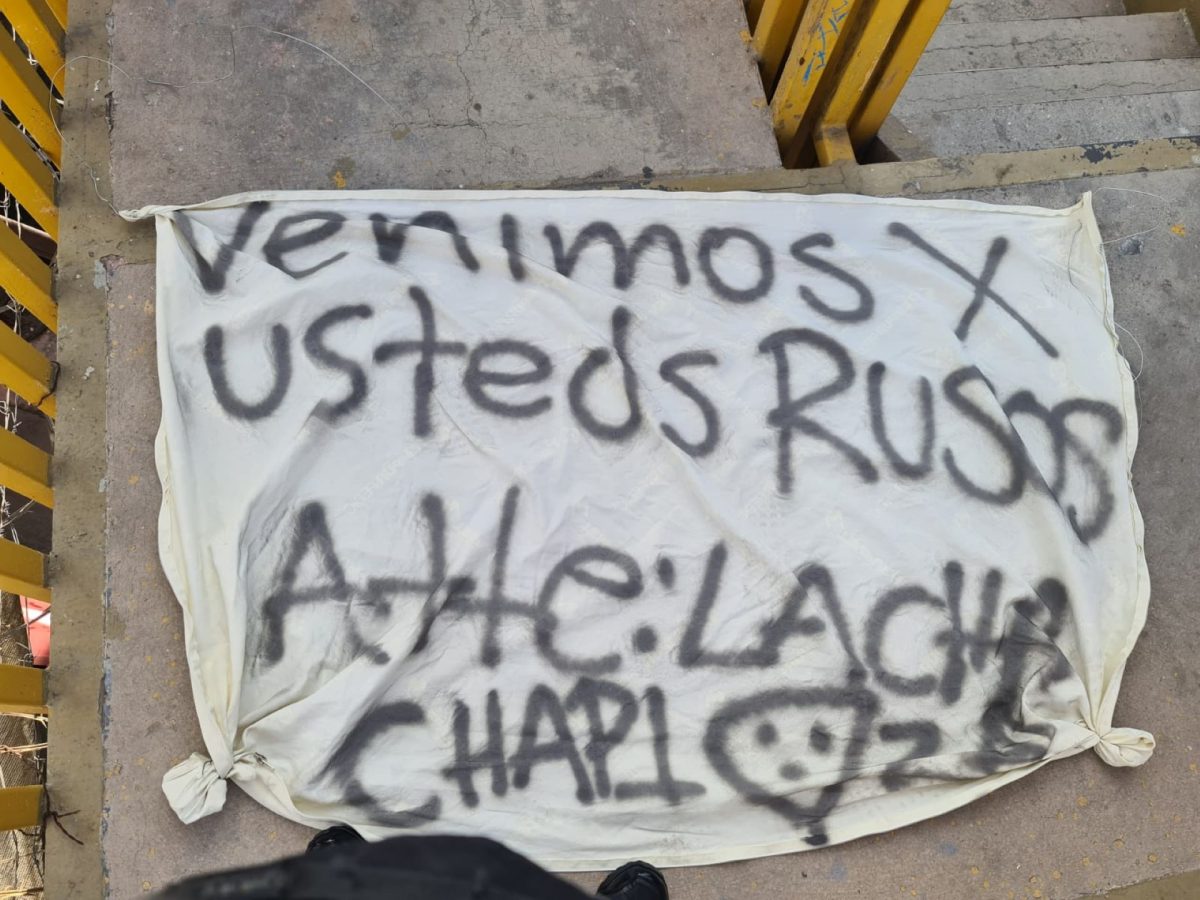 Venimos X
usteds RUSOS
Atte: LACHA
CHAPI